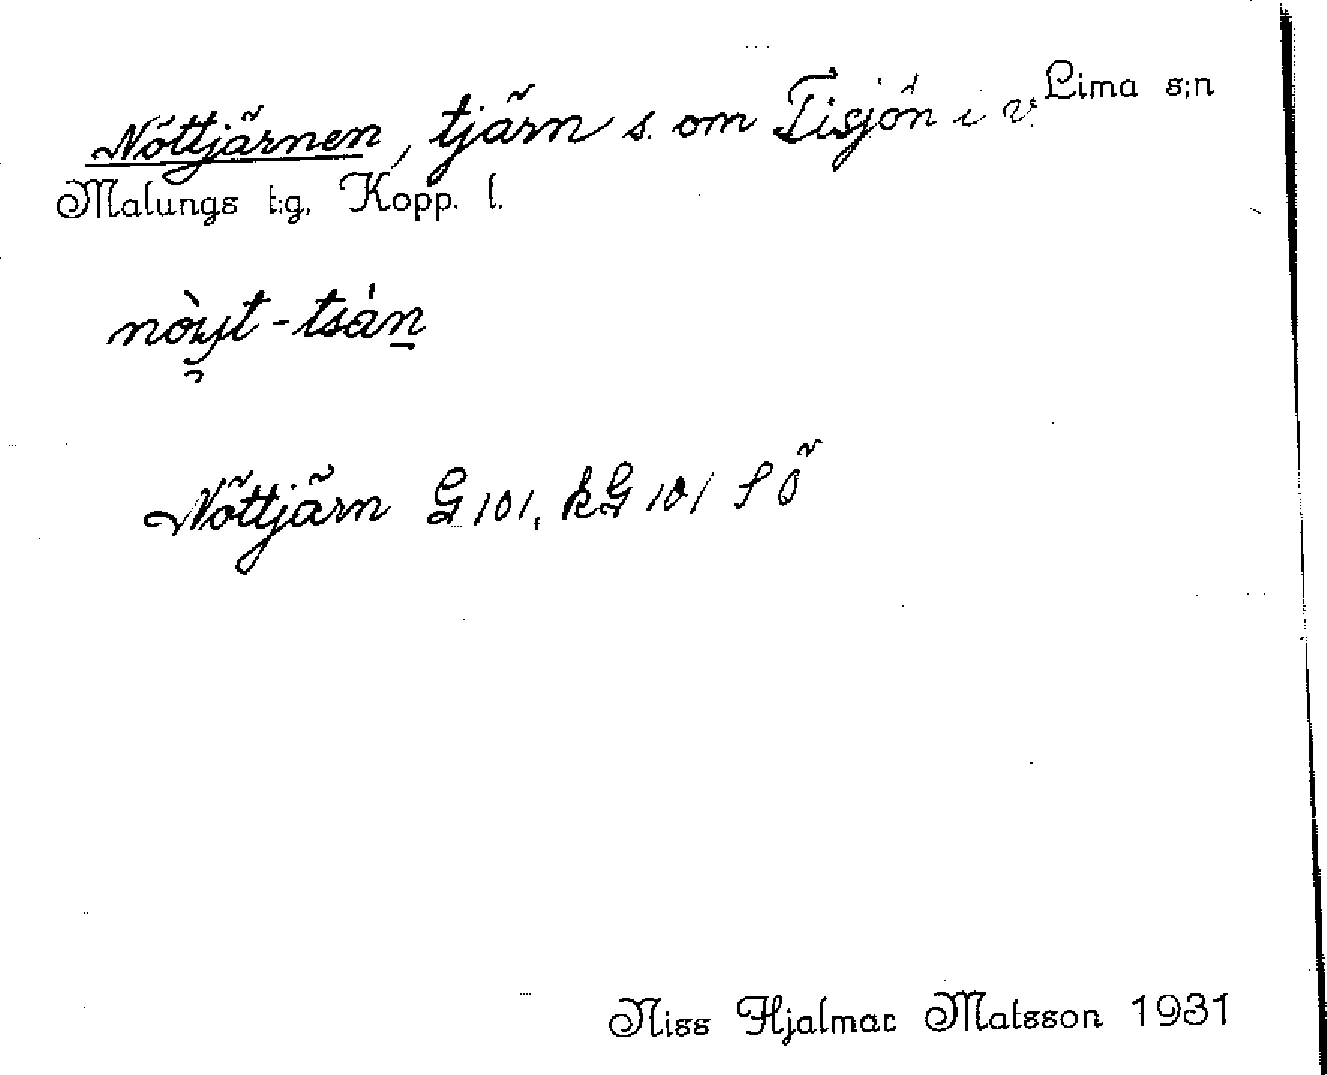 Nöttjärnen, tjärn s. om Tisjön i v. Lima s:n
Malungs t:g, Kopp. l.
nòyt-tsán
Nöttjärn G 101, kG 101 SÖ
Niss Hjalmar Matsson 1931